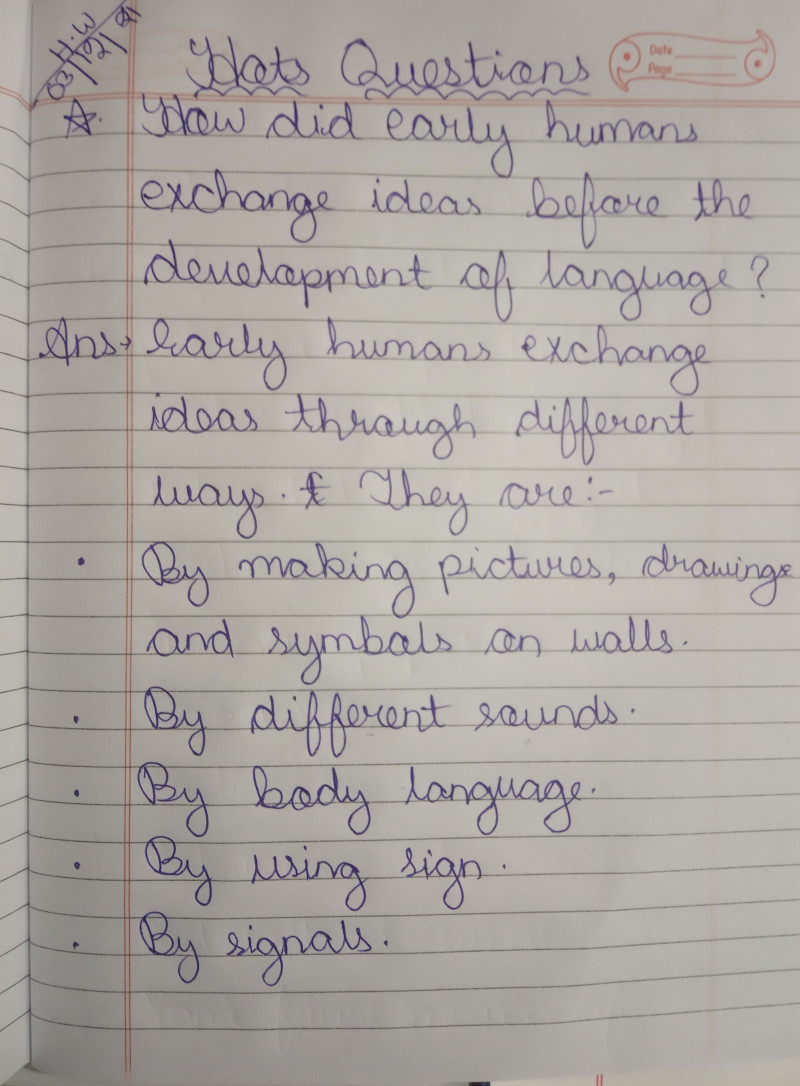 H.W
03/12/21
Hots Questions
Date
Page
A. How did early humans
exchange ideas before the
development of language?
Ans→ Early humans exchange
ideas through different
ways. t They are:-
• By making pictures, drawings
and symbols on walls.
• By different sounds.
• By body language.
• By using sign.
• By signals.